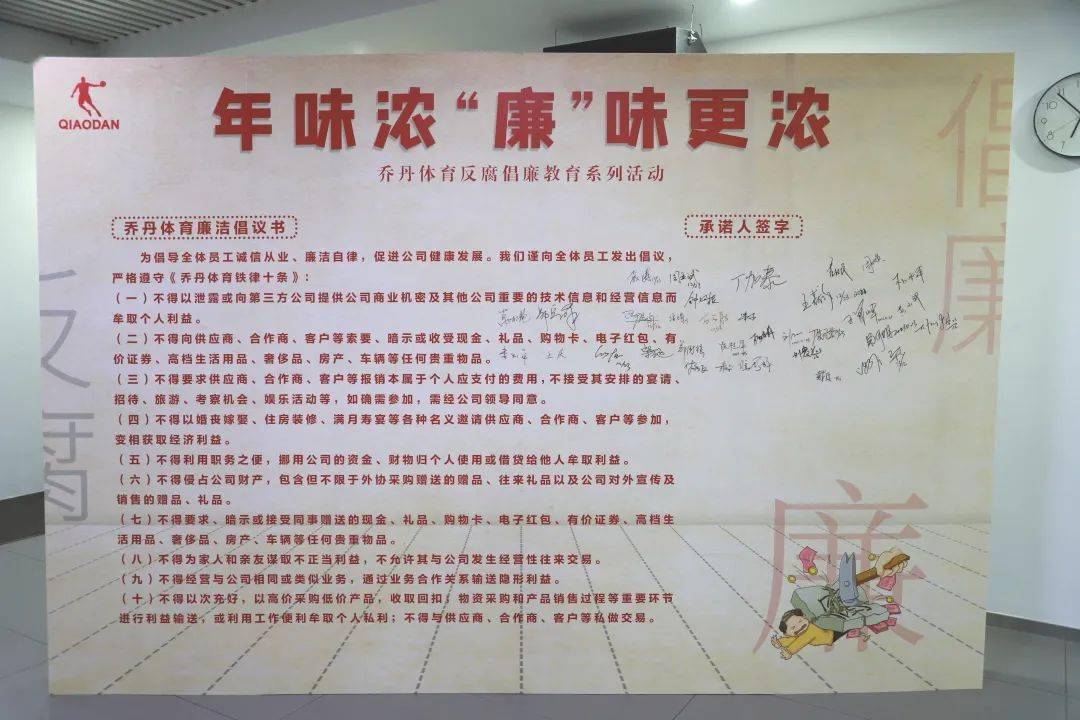 QIAODAN
年味浓“廉”味更浓
乔丹体育反腐倡廉教育系列活动
倡廉
反腐
乔丹体育廉洁倡议书
为倡导全体员工诚信从业、廉洁自律，促进公司健康发展。我们谨向全体员工发出倡议，
严格遵守《乔丹体育铁律十条》：
（一）不得以泄露或向第三方公司提供公司商业机密及其他公司重要的技术信息和经营信息而
牟取个人利益。
（二）不得向供应商、合作商、客户等索要、暗示或收受现金、礼品、购物卡、电子红包、有
价证券、高档生活用品、奢侈品、房产、车辆等任何贵重物品。
（三）不得要求供应商、合作商、客户等报销本属于个人应支付的费用，不接受其安排的宴请、
招待、旅游、考察机会、娱乐活动等，如确需参加，需经公司领导同意。
（四）不得以婚丧嫁娶、住房装修、满月寿宴等各种名义邀请供应商、合作商、客户等参加，
变相获取经济利益。
（五）不得利用职务之便，挪用公司的资金、财物归个人使用或借贷给他人牟取利益。
（六）不得侵占公司财产，包含但不限于外协采购赠送的赠品、往来礼品以及公司对外宣传及
销售的赠品、礼品。
（七）不得要求、暗示或接受同事赠送的现金、礼品、购物卡、电子红包、有价证券、高档生
活用品、奢侈品、房产、车辆等任何贵重物品。
（八）不得为家人和亲友谋取不正当利益，不允许其与公司发生经营性往来交易。
（九）不得经营与公司相同或类似业务，通过业务合作关系输送隐形利益。
（十）不得以次充好，以高价采购低价产品，收取回扣；物资采购和产品销售过程等重要环节
进行利益输送，或利用工作便利牟取个人私利；不得与供应商、合作商、客户等私做交易。
承诺人签字
丁加泰
廉